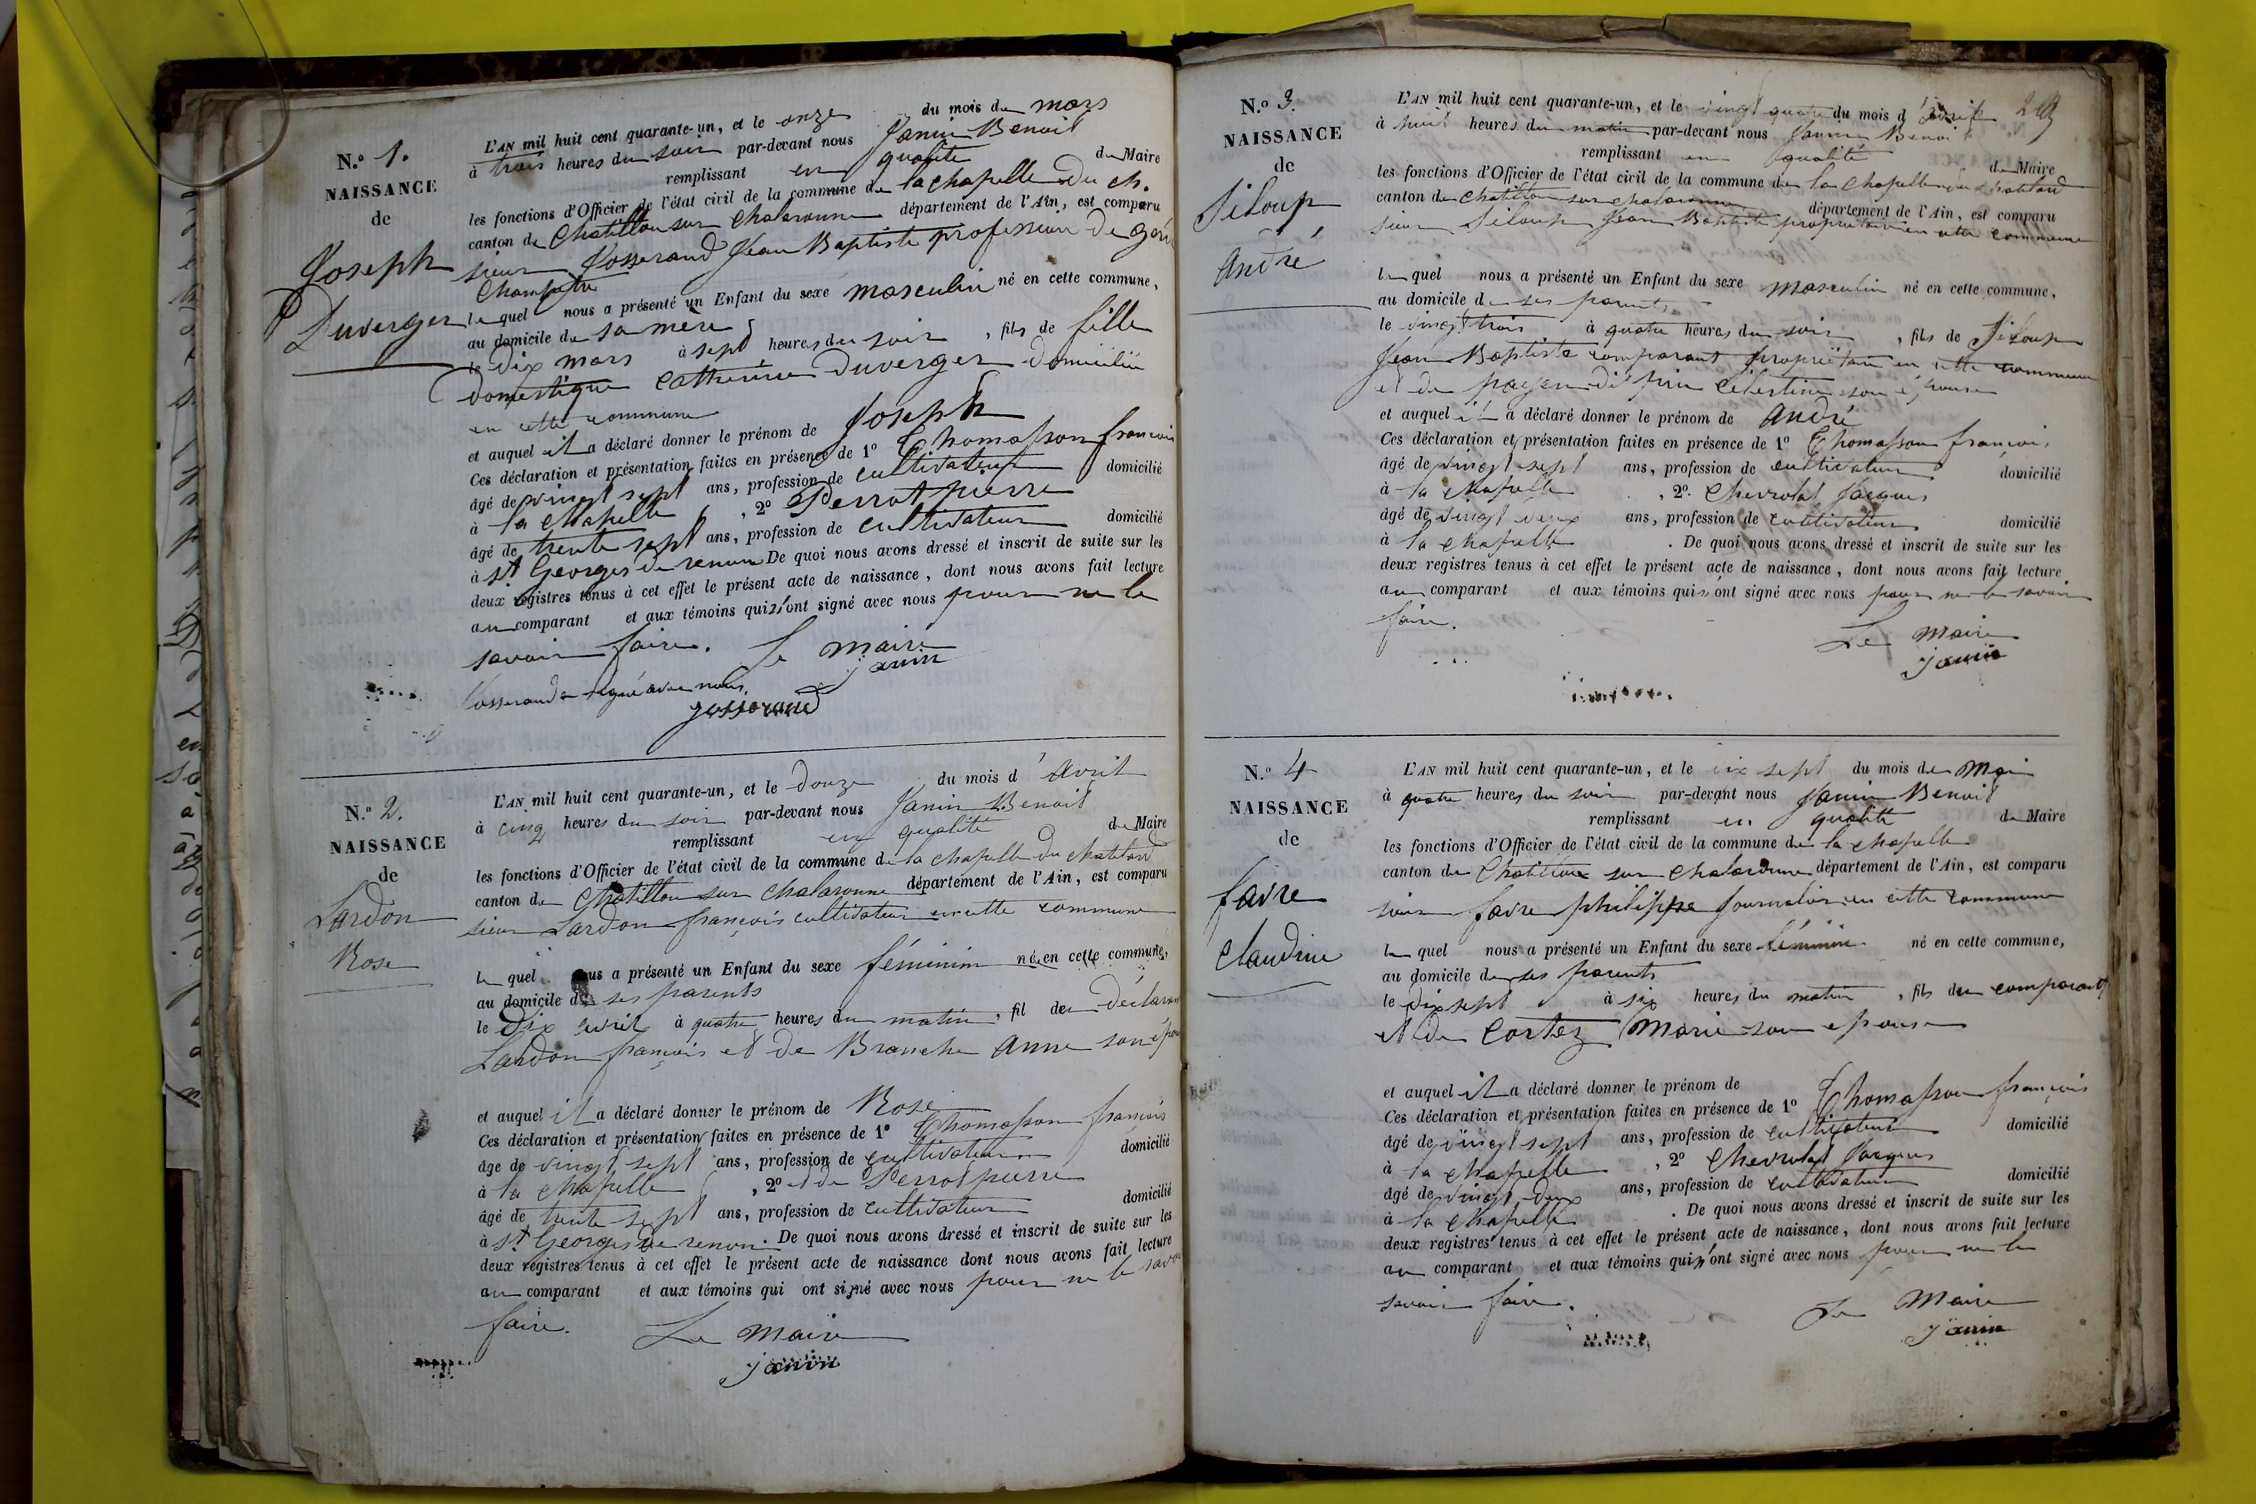 N.o 1.
NAISSANCE
de
Joseph
Duverger
L'AN mil huit cent quarante-un, et le onze du mois de mars
à trois heures du soir par-devant nous Janin Benoit
remplissant en qualité de Maire
les fonctions d'Officier de l'état civil de la commune de la chapelle du ch.
canton de Chatillon sur chalaronne département de l'Ain, est comparu
sieur Josserand Jean Baptiste profession de garde
champetre
le quel nous a présenté un Enfant du sexe masculin né en cette commune,
au domicile de sa mère
le dix mars à sept heures du soir, fils de fille
domestique Catherine Duverger domiciliée
en cette commune
et auquel il a déclaré donner le prénom de Joseph
Ces déclaration et présentation faites en présence de 1o Thomasson françois
âgé de vingt sept ans, profession de cultivateur domicilié
à la chapelle, 2o Perrot pierre
âgé de trente sept ans, profession de cultivateur domicilié
à St Georges de renon De quoi nous avons dressé et inscrit de suite sur les
deux registres tenus à cet effet le présent acte de naissance, dont nous avons fait lecture
au comparant et aux témoins qui n'ont signé avec nous pour ne le
savoir faire. Le maire
janin
Josserand a signé avec nous.
josserand
N.o 2.
NAISSANCE
de
Lardon
Rose
L'AN mil huit cent quarante-un, et le douze du mois d'avril
à cinq heures du soir par-devant nous Janin Benoit
remplissant en qualité de Maire
les fonctions d'Officier de l'état civil de la commune de la chapelle du chatelard
canton de Chatillon sur chalaronne département de l'Ain, est comparu
sieur Lardon françois cultivateur en cette commune
le quel nous a présenté un Enfant du sexe féminin né en cette commune,
au domicile de ses parents
le dix avril à quatre heures du matin, fil de déclarant
Lardon françois et de Branche anne son épouse
et auquel il a déclaré donner le prénom de Rose
Ces déclaration et présentation faites en présence de 1o Thomasson françois
âgé de vingt sept ans, profession de cultivateur domicilié
à la chapelle, 2o et de Perrot pierre
âgé de trente sept ans, profession de cultivateur domicilié
à St Georges de renon. De quoi nous avons dressé et inscrit de suite sur les
deux registres tenus à cet effet le présent acte de naissance dont nous avons fait lecture
au comparant et aux témoins qui ont signé avec nous pour ne le savoir
faire. Le maire
janin
N.o 3.
NAISSANCE
de
Siloup
André
L'AN mil huit cent quarante-un, et le vingt quatre du mois d'avril
à huit heures du matin par-devant nous Janin Benoit
remplissant en qualité de Maire
les fonctions d'Officier de l'état civil de la commune de la chapelle du chatelard
canton de Chatillon sur chalaronne département de l'Ain, est comparu
sieur Siloup Jean Baptiste propriétaire en cette commune
le quel nous a présenté un Enfant du sexe masculin né en cette commune,
au domicile de ses parents
le vingt trois à quatre heures du soir, fils de Siloup
Jean Baptiste comparant propriétaire en cette commune
et de Célestine son épouse
et auquel il a déclaré donner le prénom de André
Ces déclaration et présentation faites en présence de 1o Thomasson françois
âgé de vingt sept ans, profession de cultivateur domicilié
à la chapelle, 2o. Chevrolat Jacques
âgé de vingt deux ans, profession de cultivateur domicilié
à la chapelle. De quoi nous avons dressé et inscrit de suite sur les
deux registres tenus à cet effet le présent acte de naissance, dont nous avons fait lecture
au comparant et aux témoins qui n'ont signé avec nous pour ne le savoir
faire. Le maire
janin
N.o 4
NAISSANCE
de
favre
Claudine
L'AN mil huit cent quarante-un, et le dix sept du mois de Mai
à quatre heures du soir par-devant nous Janin Benoit
remplissant en qualité de Maire
les fonctions d'Officier de l'état civil de la commune de la chapelle
canton de Chatillon sur chalaronne département de l'Ain, est comparu
sieur favre philippe journalier en cette commune
le quel nous a présenté un Enfant du sexe féminin né en cette commune,
au domicile de ses parents
le dix sept à six heures du matin, fils du comparant
et de Cortez Marie son epouse
et auquel il a déclaré donner le prénom de
Ces déclaration et présentation faites en présence de 1o Thomasson françois
âgé de vingt sept ans, profession de cultivateur domicilié
à la chapelle, 2o Chevrolat Jacques
âgé de vingt deux ans, profession de cultivateur domicilié
à la chapelle. De quoi nous avons dressé et inscrit de suite sur les
deux registres tenus à cet effet le présent acte de naissance, dont nous avons fait lecture
au comparant et aux témoins qui n'ont signé avec nous pour ne le
savoir faire. Le Maire
janin